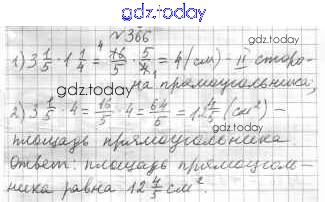 gdz.today
№366
gdz.today
1) 3 1/5 · 1 1/4 = 16/5 · 5/4 = 4 (см) - II сторо-
на прямоугольника;
gdz.today
2) 3 1/5 · 4 = 16/5 · 4 = 64/5 = 12 4/5 (см²) -
площадь прямоугольника
Ответ: площадь прямоуголь-
ника равна 12 4/5 см².
gdz.today